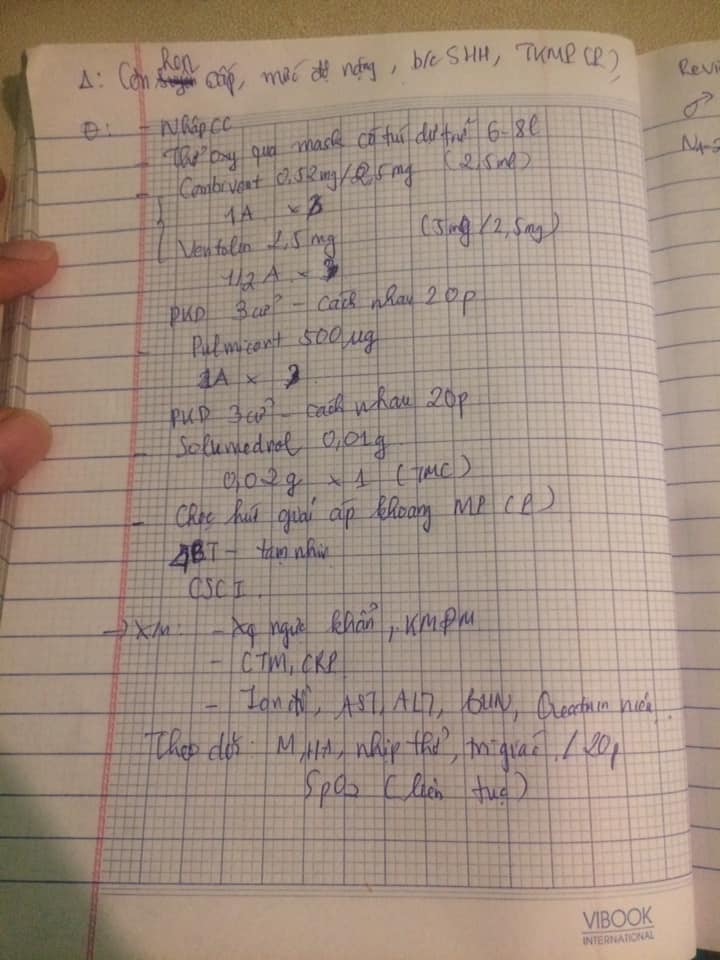 Δ: Cơn hen cấp, mức độ nặng, b/c SHH, TKMP (P)
θ: - Nhập CC
- Thở oxy qua mask có túi dự trữ 6-8l
- Combivent 0,52mg/2,5mg (2,5ml)
1A x 3
Ventolin 2,5mg (5mg/2,5mg)
1/2A x 3
PKD 3 cữ - cách nhau 20p
- Pulmicort 500μg
1A x 3
PKD 3 cữ - cách nhau 20p
- Solumedrol 0,01g
0,02g x 1 (TMC)
- Chọc hút giải áp khoang MP (P)
BT - tạm nhịn
CSC I
→ XN: - Xq ngực khẩn, KMĐM
- CTM, CRP
- Ion đồ, AST, ALT, BUN, Creatinin
Theo dõi: M, HA, nhịp thở, tri giác /20p
SpO2 (liên tục)
Revi
♂
VIBOOK
INTERNATIONAL